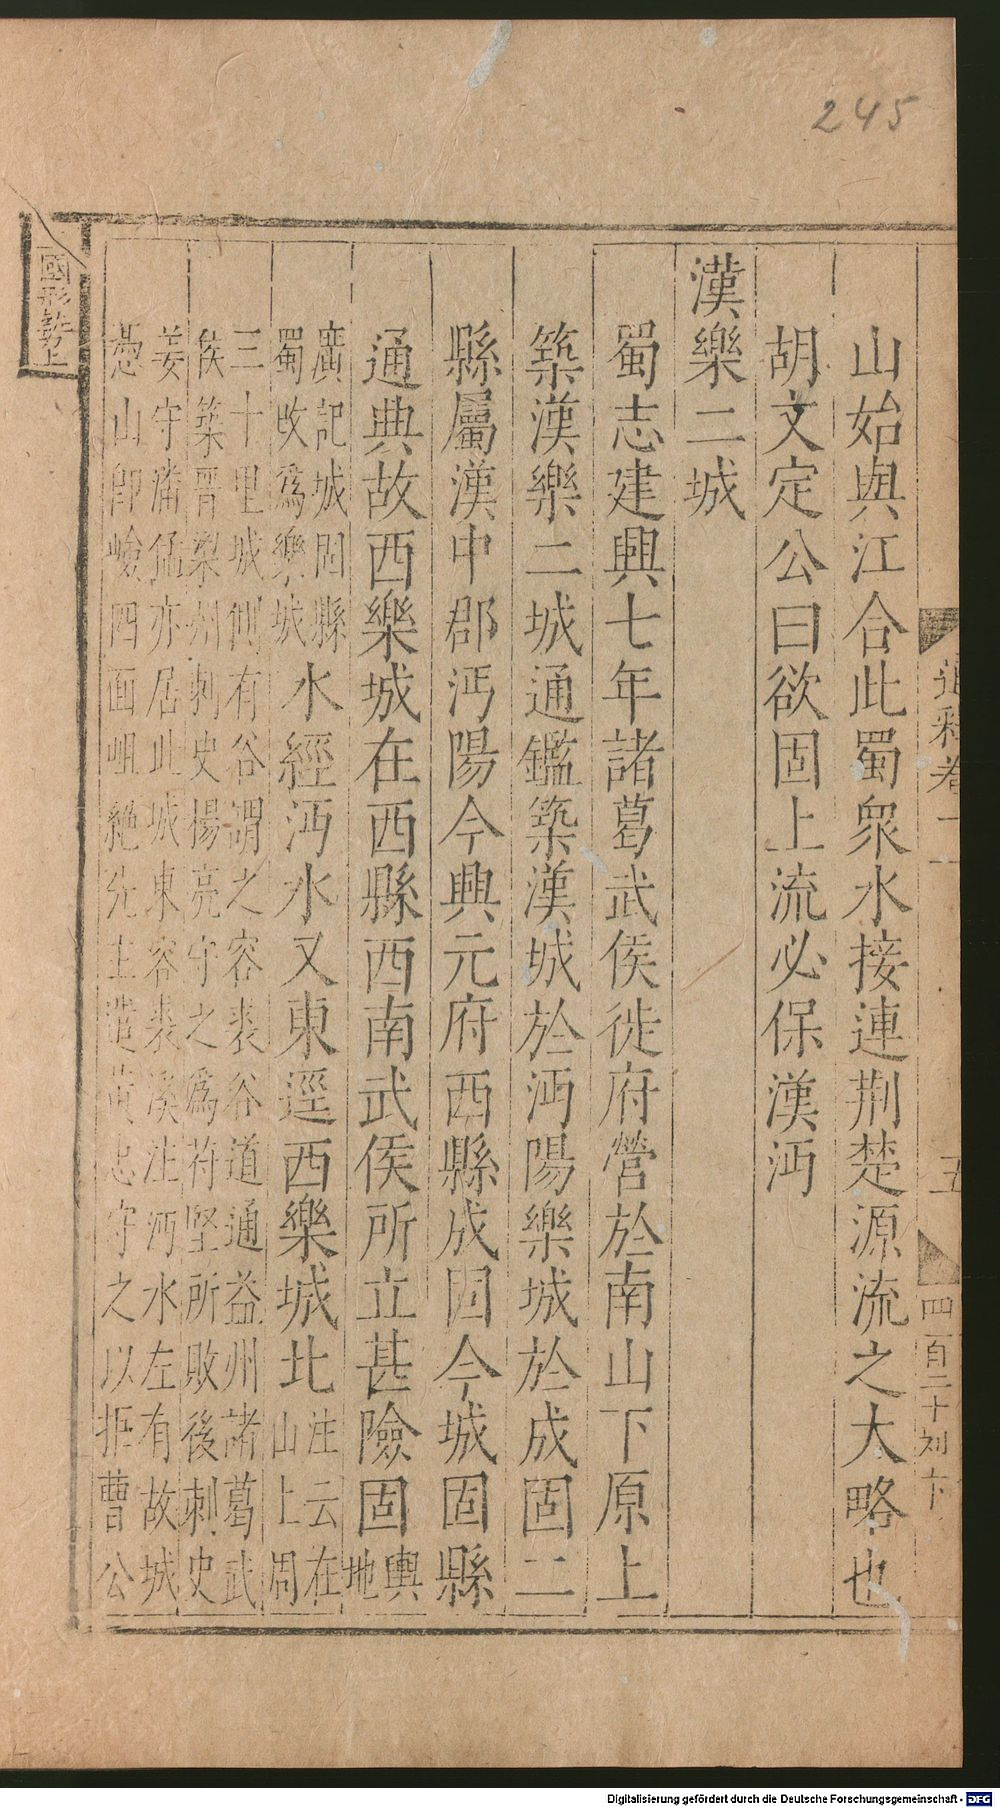 245
山始與江合此蜀衆水接連荆楚源流之大略也
胡文定公曰欲固上流必保漢沔
漢樂二城
蜀志建興七年諸葛武侯徙府營於南山下原上
築漢樂二城通鑑築漢城於沔陽樂城於成固二
縣屬漢中郡沔陽今興元府西縣成固今城固縣
通典故西樂城在西縣西南武侯所立甚險固輿
地
廣記城固縣
蜀改爲樂城
水經沔水又東逕西樂城北
注云在
山上周
三十里城側有谷謂之容裘谷道通益州諸葛武
侯築晉梁州刺史楊亮守之爲苻堅所敗後刺史
姜守潘猛亦居此城東容裘溪注沔水左有故城
憑山即嶮四面岨絶先主遣黄忠守之以拒曹公
國形勢上
通釋卷十一
五
四百二十
Digitalisierung gefördert durch die Deutsche Forschungsgemeinschaft - DFG